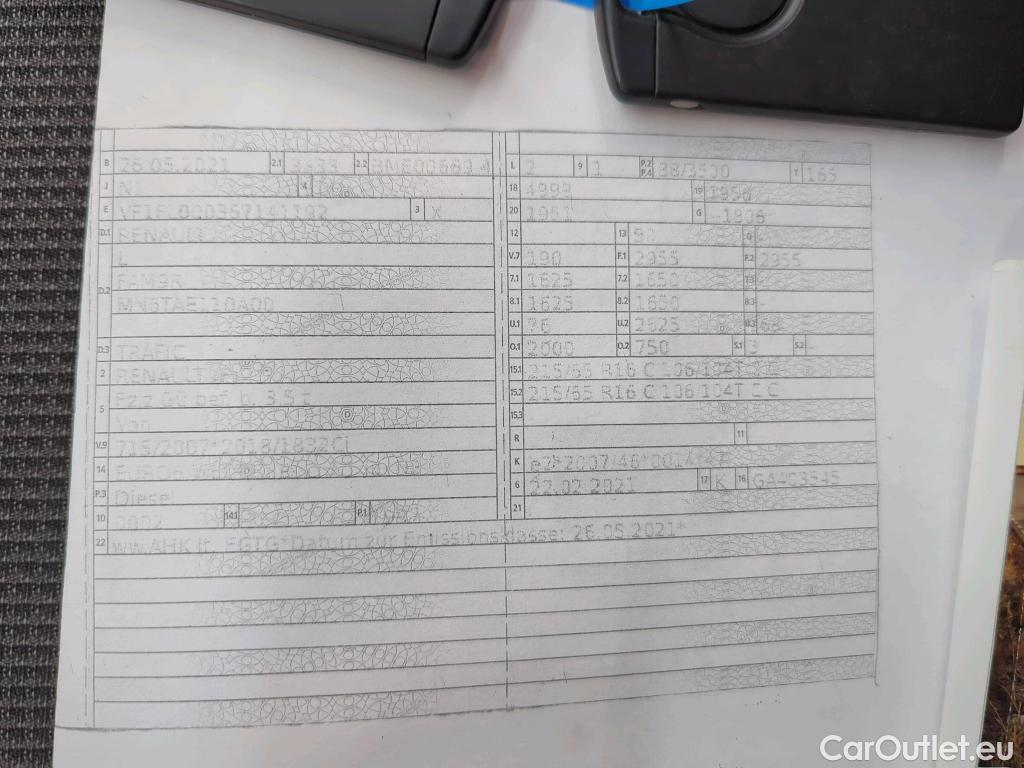 B 26.05.2021 2.1 3333 2.2
J N1 4
E VF1FL000367141192 3 X
D.1 RENAULT
D.2 L
MN6TAE110A00
D.3 TRAFIC
2 RENAULT
5 Fz.z.Gü.bef.b. 3,5 t
Van
V.9 715/2007*2018/1832CI
14 EURO6
P.3 Diesel
10 0002 14.1 P.1
L 2 9 1 P.2 P.4 88/3500 T 165
18 4999 19 1956
20 1951 G -1806-
12 13 Q
V.7 190 F.1 2955 F.2 2955
7.1 1625 7.2 1650 7.3
8.1 1625 8.2 1650 8.3 -
U.1 76 U.2 2625 U.3 68
O.1 2000 O.2 750 S.1 3 S.2 -
15.1 215/65 R16 C 106/104T
15.2 215/65 R16 C 106/104T
15.3
R 11
K e2*2007/46*0014*
6 22.02.2021 17 K 16 GA-
21
22 ww.AHK lt. EGTG*Datum zur Emissionsklasse: 26.05.2021*
CarOutlet.eu